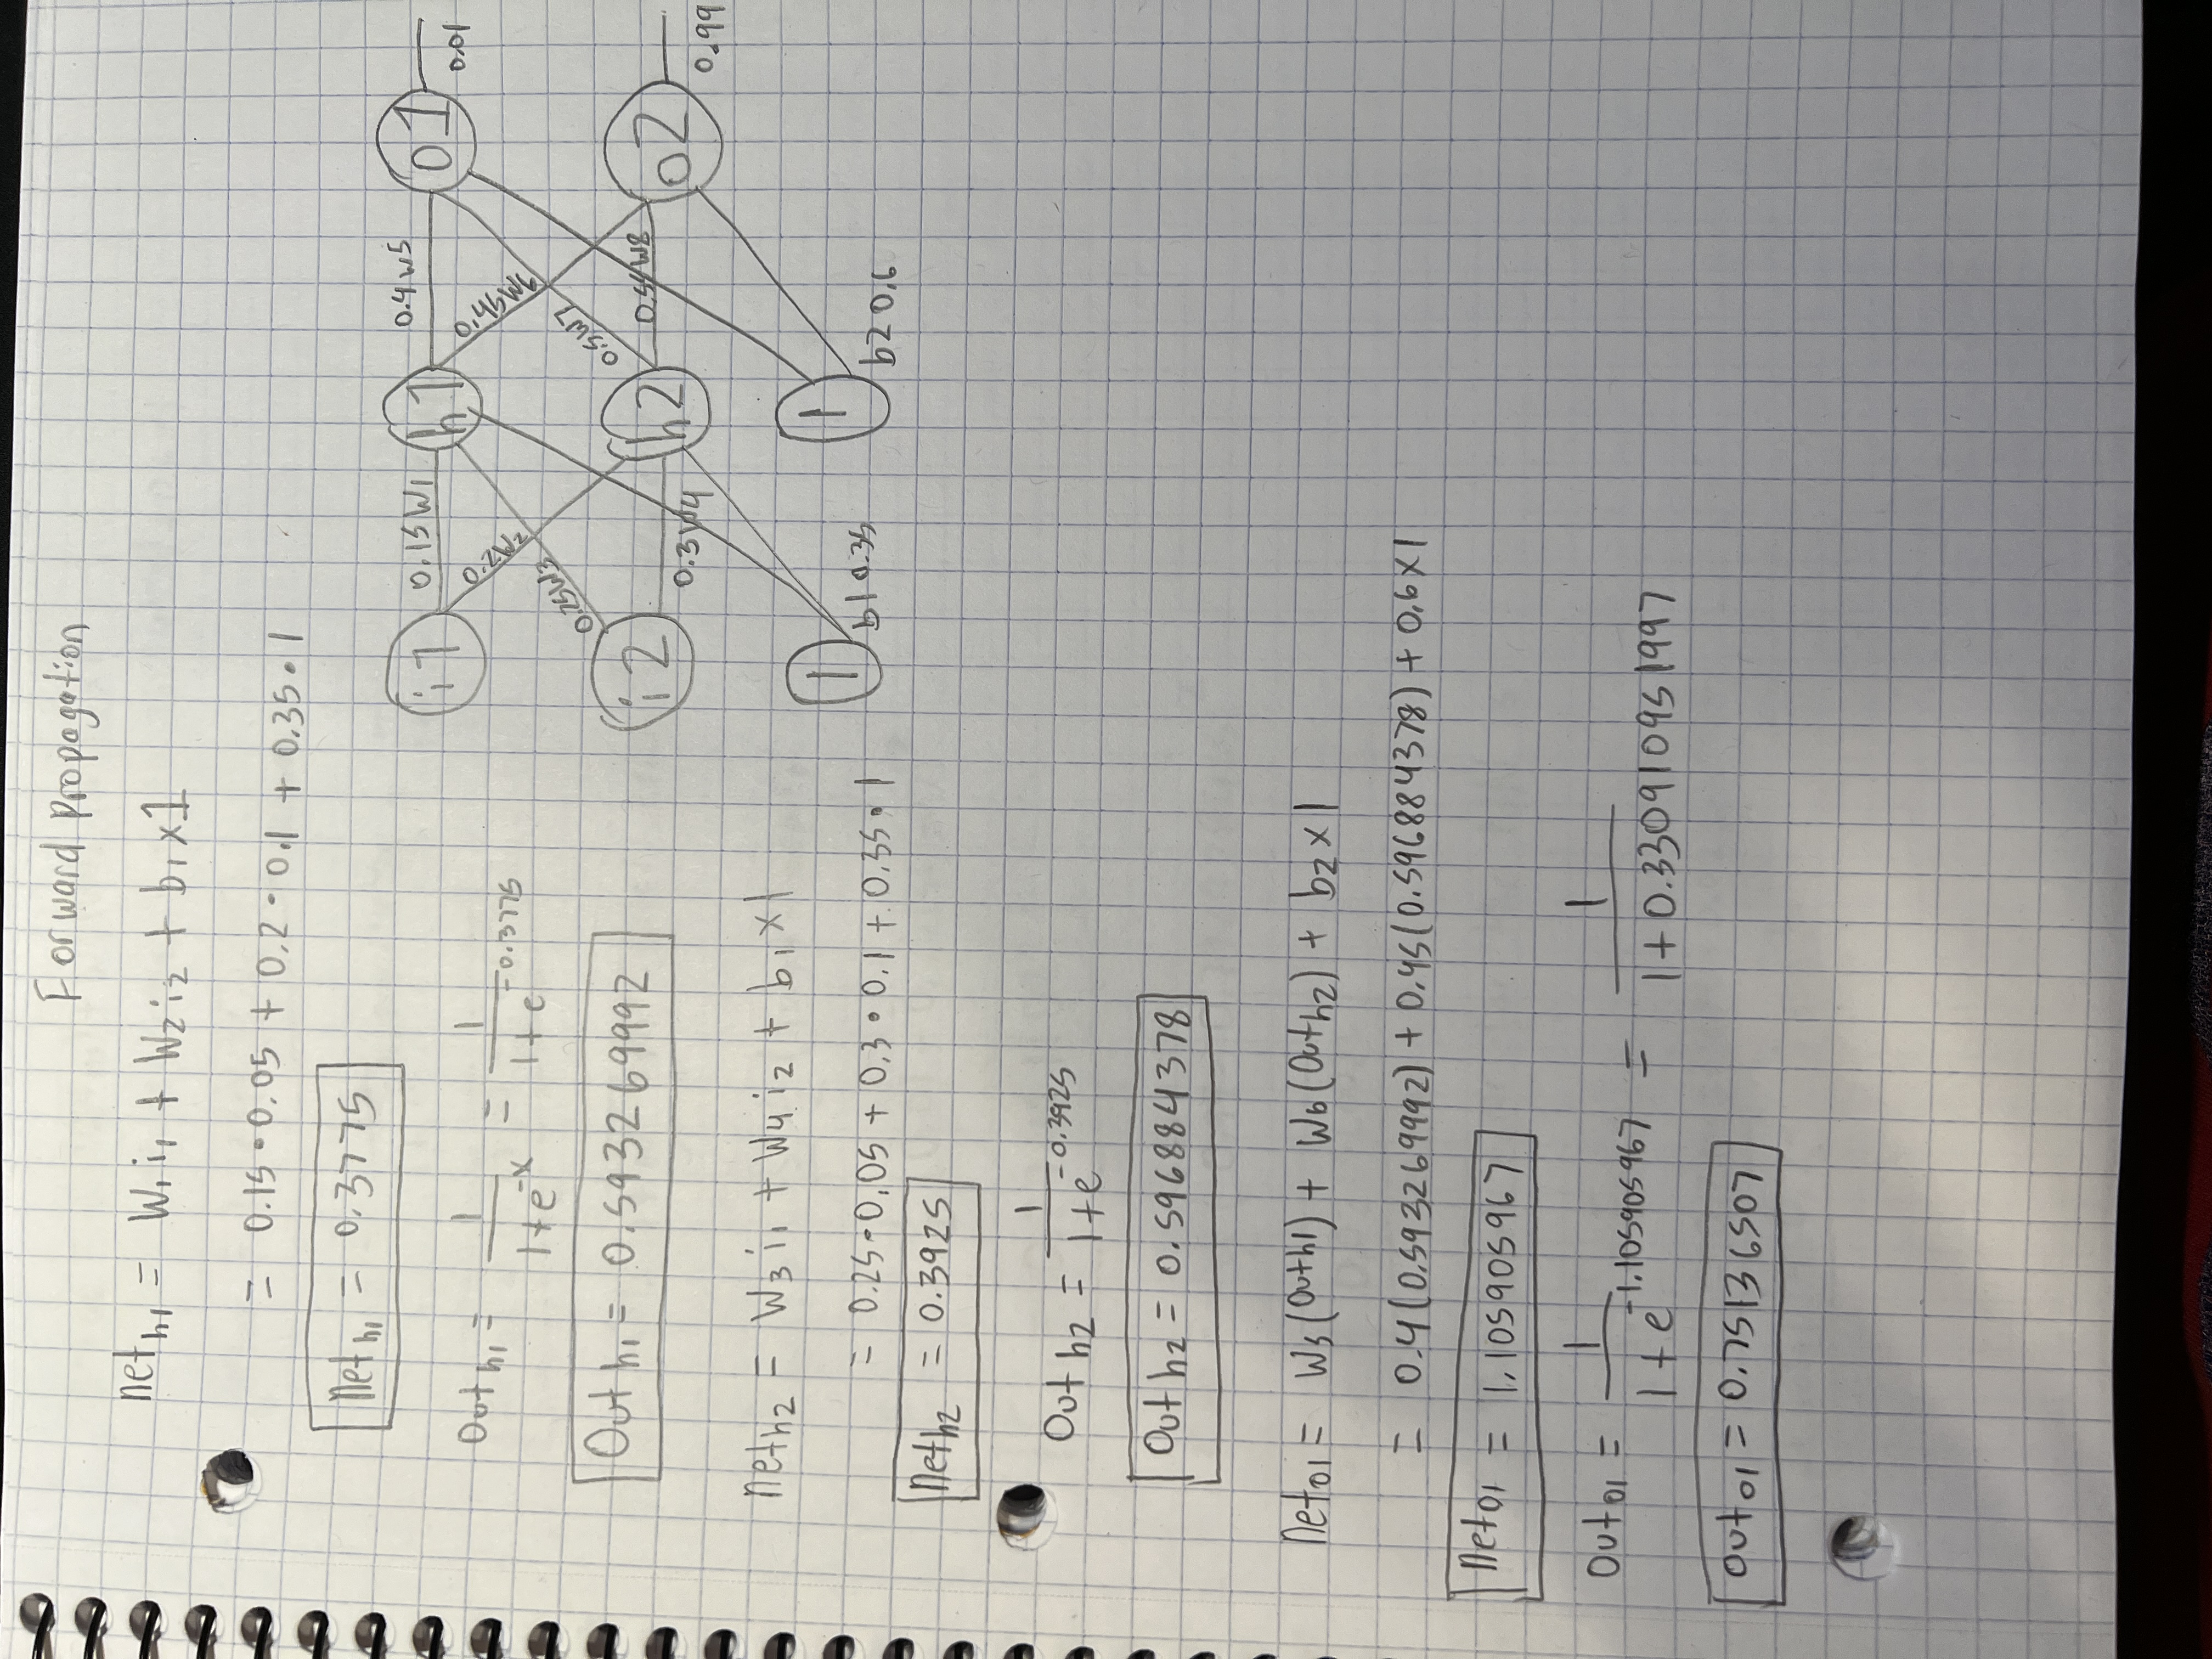 Forward Propagation
net h1 = W1 i1 + W2 i2 + b1 x 1
= 0.15 • 0.05 + 0.2 • 0.1 + 0.35 • 1
Net h1 = 0.3775
Out h1 = 1/(1+e^-x) = 1/(1+e^-0.3775)
Out h1 = 0.593269992
net h2 = W3 i1 + W4 i2 + b1 x 1
= 0.25 • 0.05 + 0.3 • 0.1 + 0.35 • 1
Net h2 = 0.3925
Out h2 = 1/(1+e^-0.3925)
Out h2 = 0.596884378
Net o1 = W5 (Out h1) + W6 (Out h2) + b2 x 1
= 0.4 (0.593269992) + 0.45 (0.596884378) + 0.6 x 1
Net o1 = 1.105905967
Out o1 = 1/(1+e^-1.105905967) = 1/(1+0.330910951997)
Out o1 = 0.75136507
i1
0.15 W1
h1
0.4 W5
o1
0.01
0.2 W2
0.45 W6
0.25 W3
0.5 W7
i2
0.3 W4
h2
W8
o2
0.99
1
b1 0.35
1
b2 0.6